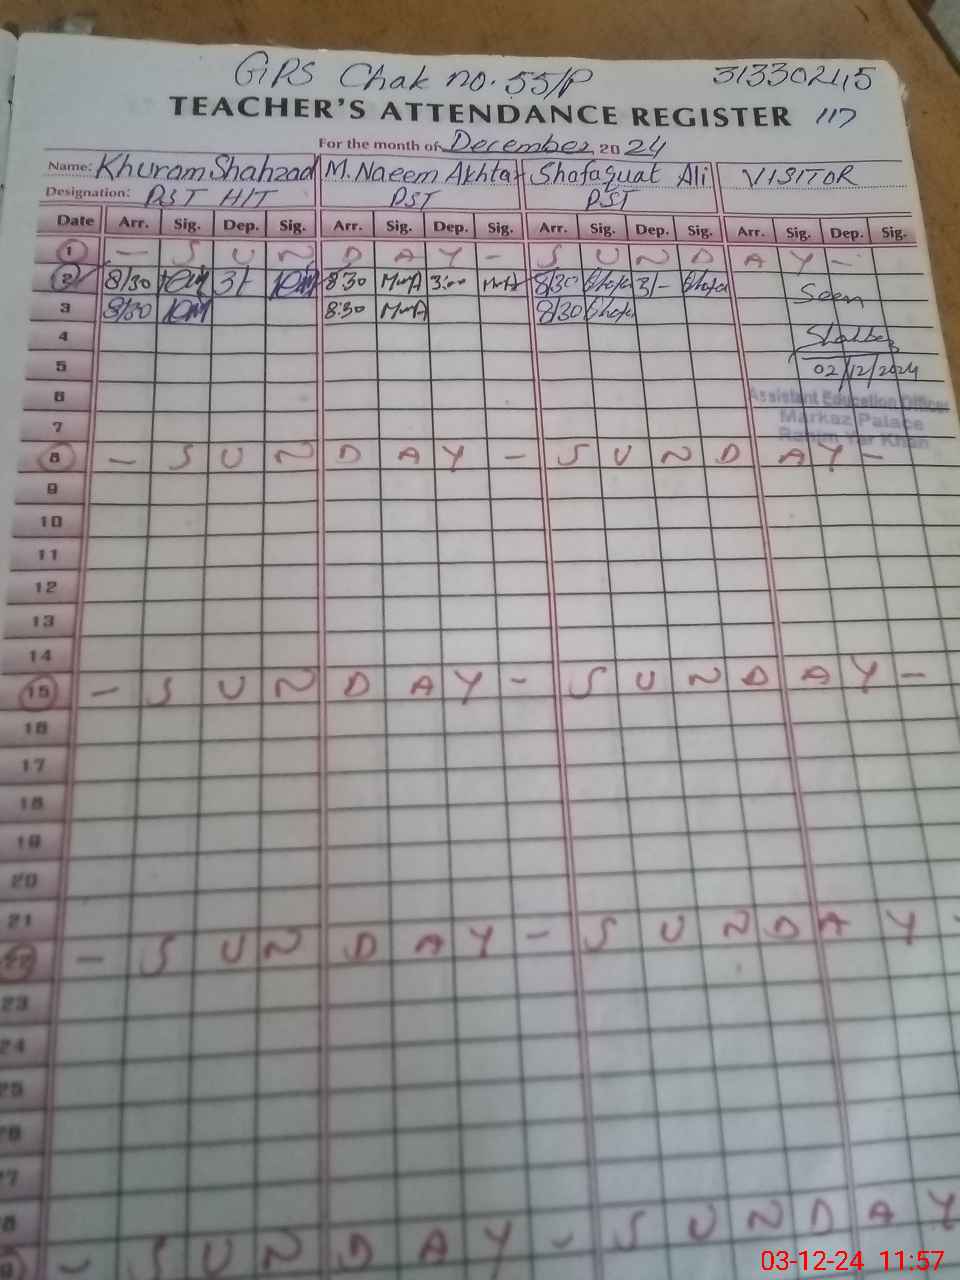 GPS Chak no. 55/P 31330245
TEACHER'S ATTENDANCE REGISTER 117
For the month of December 2024
Name: Khuram Shahzad M. Naeem Akhtar Shafaquat Ali VISITOR
Designation: PST H/T PST PST
Date Arr. Sig. Dep. Sig. Arr. Sig. Dep. Sig. Arr. Sig. Dep. Sig. Arr. Sig. Dep. Sig.
1 — S U N D A Y — S U N D A Y —
2 8/30 3/- 8:30 MNA 3:00 MNA 8/30 Shafa 3/- Shafa Seen
3 8/30 8:30 MNA 8/30 Shafa
4
5 02/12/2024
6 Assistant Education Officer
7 Markaz Palace
Rahim Yar Khan
8 — S U N D A Y — S U N D A Y —
9
10
11
12
13
14
15 — S U N D A Y — S U N D A Y —
16
17
18
19
20
21
22 — S U N D A Y — S U N D A Y -
23
24
25
26
27
28
29 — S U N D A Y — S U N D A Y
03-12-24 11:57